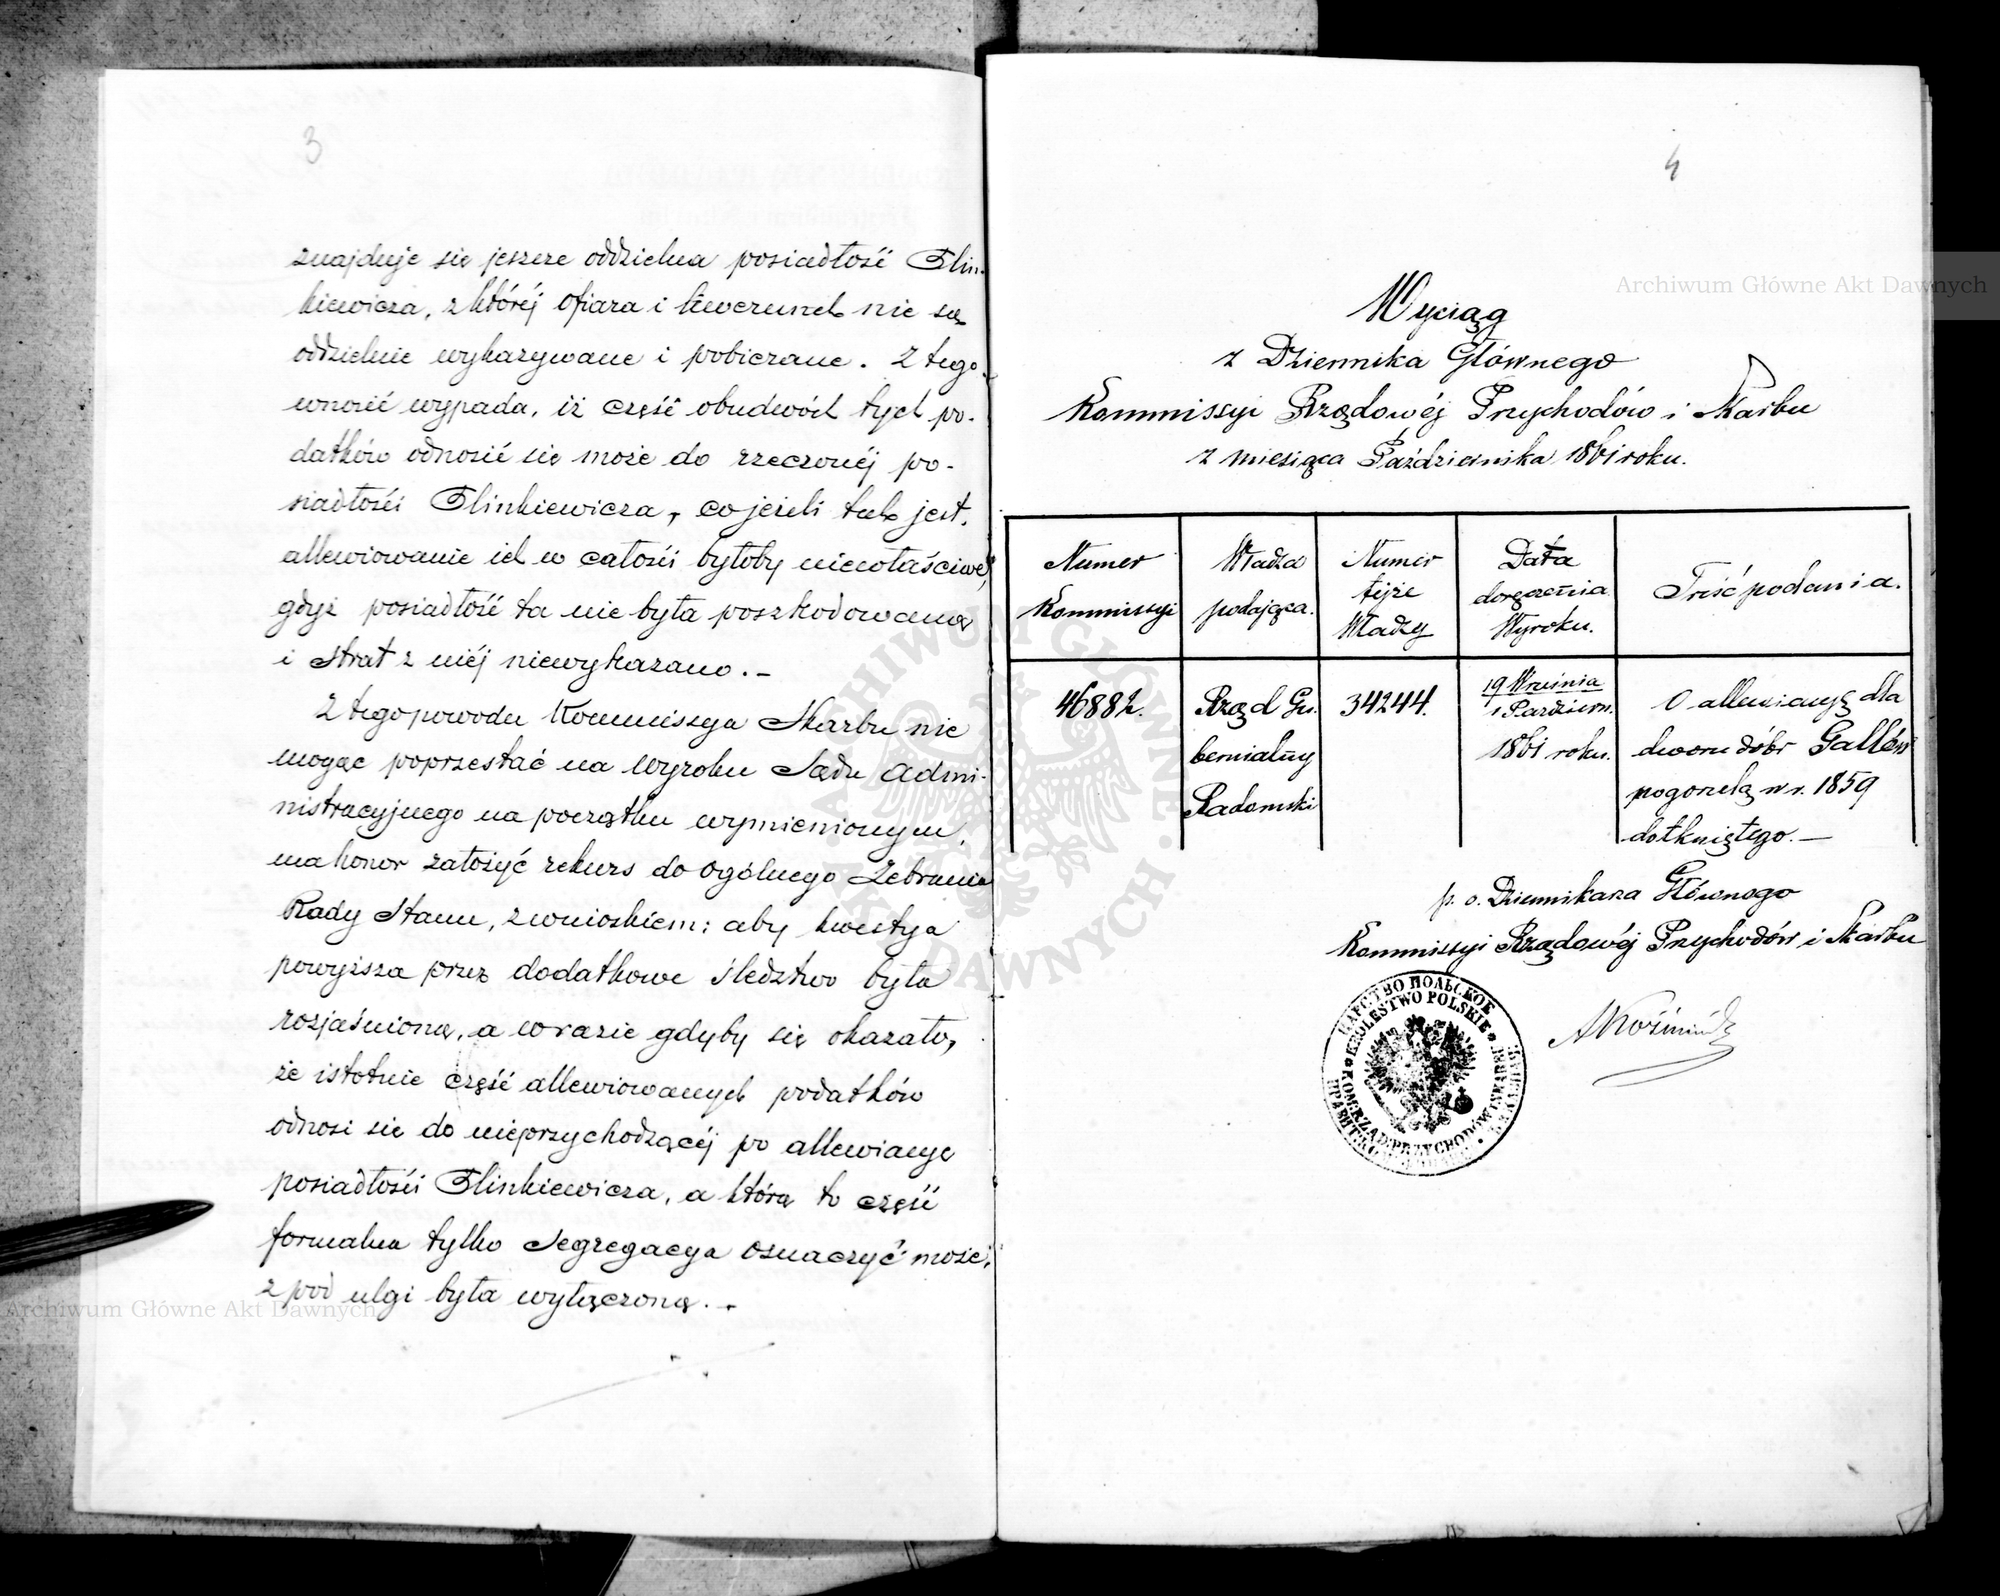 3
znajduje się jeszcze oddzielna posiadłość Glin-
kiewicza, z której ofiara i liwerunek nie są
oddzielnie wykazywane i pobierane. Z tego
wnosić wypada, iż część obudwóch tych po-
datków odnosić się może do rzeczonéj po-
siadłości Glinkiewicza, co jeżeli tak jest,
allewiowanie ich w całości byłoby niewłaściwe,
gdyż posiadłość ta nie była poszkodowaną
i strat z niéj niewykazano.–
Z tego powodu Kommissya Skarbu nie
mogąc poprzestać na wyroku Sądu Admi-
nistracyjnego na początku wymienionym,
ma honor założyć rekurs do Ogólnego Zebrania
Rady Stanu, z wnioskiem: aby kwestya
powyższa przez dodatkowe śledztwo była
rozjaśnioną, a w razie gdyby się okazało,
że istotnie część allewiowanych podatków
odnosi się do nieprzychodzącéj po allewiacyę
posiadłości Glinkiewicza, a którą to część
formalna tylko segregacya oznaczyć może,
z pod ulgi była wyłączoną.–
4
Wyciąg
z Dziennika Głównego
Kommissyi Rządowéj Przychodów i Skarbu
z miesiąca Października 1861 roku.
Numer Kommissyi
Władza podająca.
Numer téjże Władzy
Data doręczenia Wyroku.
Treść podania.
46882.
Rząd Gu-
bernialny
Radomski
34244.
19 Września
1 Październ.
1861 roku.
O allewiacyę dla
dworu dóbr Gallów
pogorzelą w r. 1859
dotkniętego.–
p. o. Dziennikarza Głównego
Kommissyi Rządowéj Przychodów i Skarbu
ЦАРСТВО ПОЛЬСКОЕ
KRÓLESTWO POLSKIE
KOM: RZĄD: PRZYCHODÓW I SKARBU
Archiwum Główne Akt Dawnych
Archiwum Główne Akt Dawnych
ARCHIWUM GŁÓWNE AKT DAWNYCH